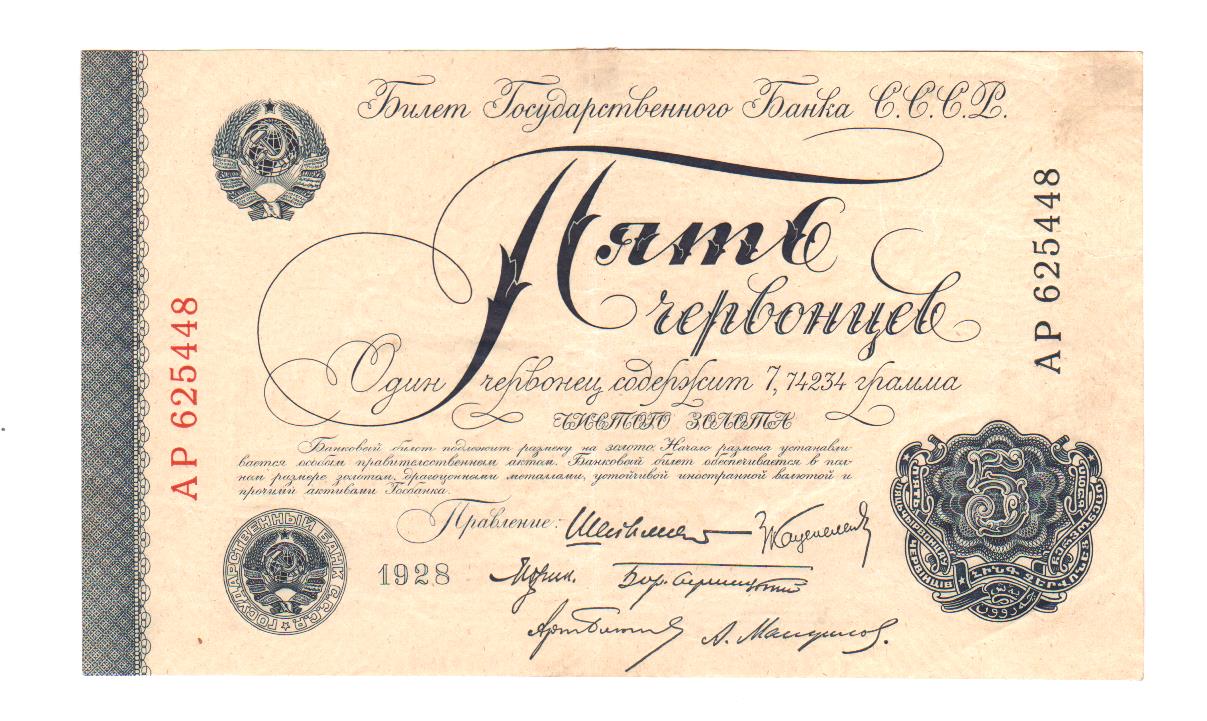 Билет Государственного Банка С.С.С.Р.
Пять
червонцев
Один червонец содержит 7,74234 грамма
ЧИСТОГО ЗОЛОТА
Банковый билет подлежит размену на золото. Начало размена устанавли-
вается особым правительственным актом. Банковый билет обеспечивается в пол-
ном размере золотом, драгоценными металлами, устойчивой иностранной валютой и
прочими активами Госбанка.
Правление:
1928
АР 625448
АР 625448
ГОСУДАРСТВЕННЫЙ БАНК С.С.С.Р.
5
ՀԻՆԳ ՉԵՐՎՈՆԵՑ